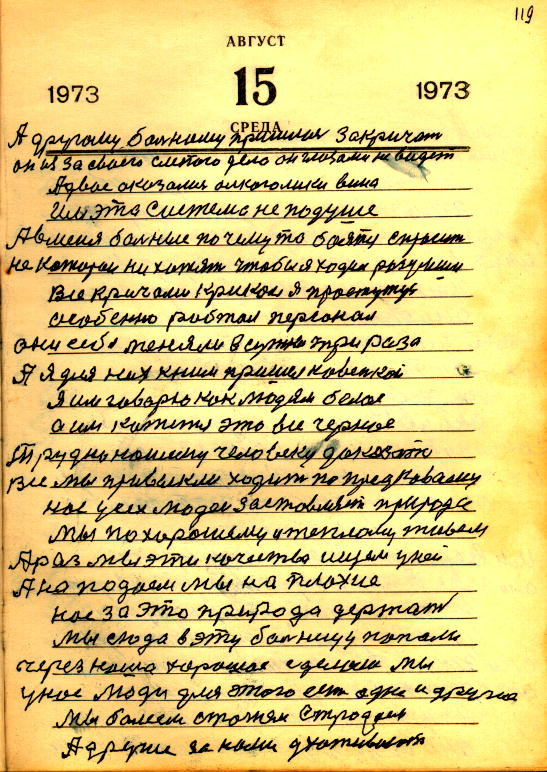 119
АВГУСТ
1973 15 1973
СРЕДА
А другому болному пришлос закричат
он из за своего слепого дело он глазами не видет
Адвое оказалис алкоголики вина
Им эта система не подуше
А вменя болные почемуто боятся спросит
не которои ни хотят чтобы я ходил
Все кричали криком я простутус
особенно роботал персонал
они себя меняли всутки три раза
А я для них кним пришел новенкой
Я им говорю как людям белое
а им кажется это все черное
Трудно нашему человеку доказать
Все мы привыкли ходит по
нас усех людей заставляет природа
Мы похорошему итеплому живем
А раз мы эти качества ищем уней
А на подаем мы на плохие
нас за это природа держат
Мы сюда в эту болницу попали
через наша хорошое сделаю мы
унас люди для этого есть одни и другие
Мы болеем стогнем Страдаем
А другие за нами ухаживают